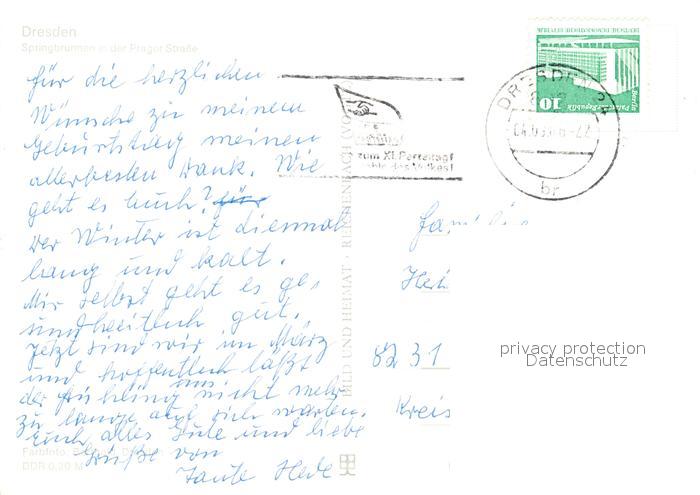 Dresden
Springbrunnen in der Prager Straße
für die herzlichen
Wünsche zu meinem
Geburtstag meinen
allerbesten Dank. Wie
geht es Euch? für
Der Winter ist diesmal
lang und kalt.
Mir selbst geht es ge-
sundheitlich gut.
Jetzt sind wir im März
und hoffentlich läßt
der Frühling uns nicht mehr
zu lange auf sich warten.
Euch alles Gute und liebe
Grüße von
Tante Hede
Farbfoto:
DDR 0,20 M
BILD UND HEIMAT · REICHENBACH (VO
zum XI. Parteitag
des Volkes!
DRESDEN
br
10
Palast der Republik
Berlin
DEUTSCHE DEMOKRATISCHE REPUBLIK
Familie
Hei
8231
Kreis
privacy protection
Datenschutz